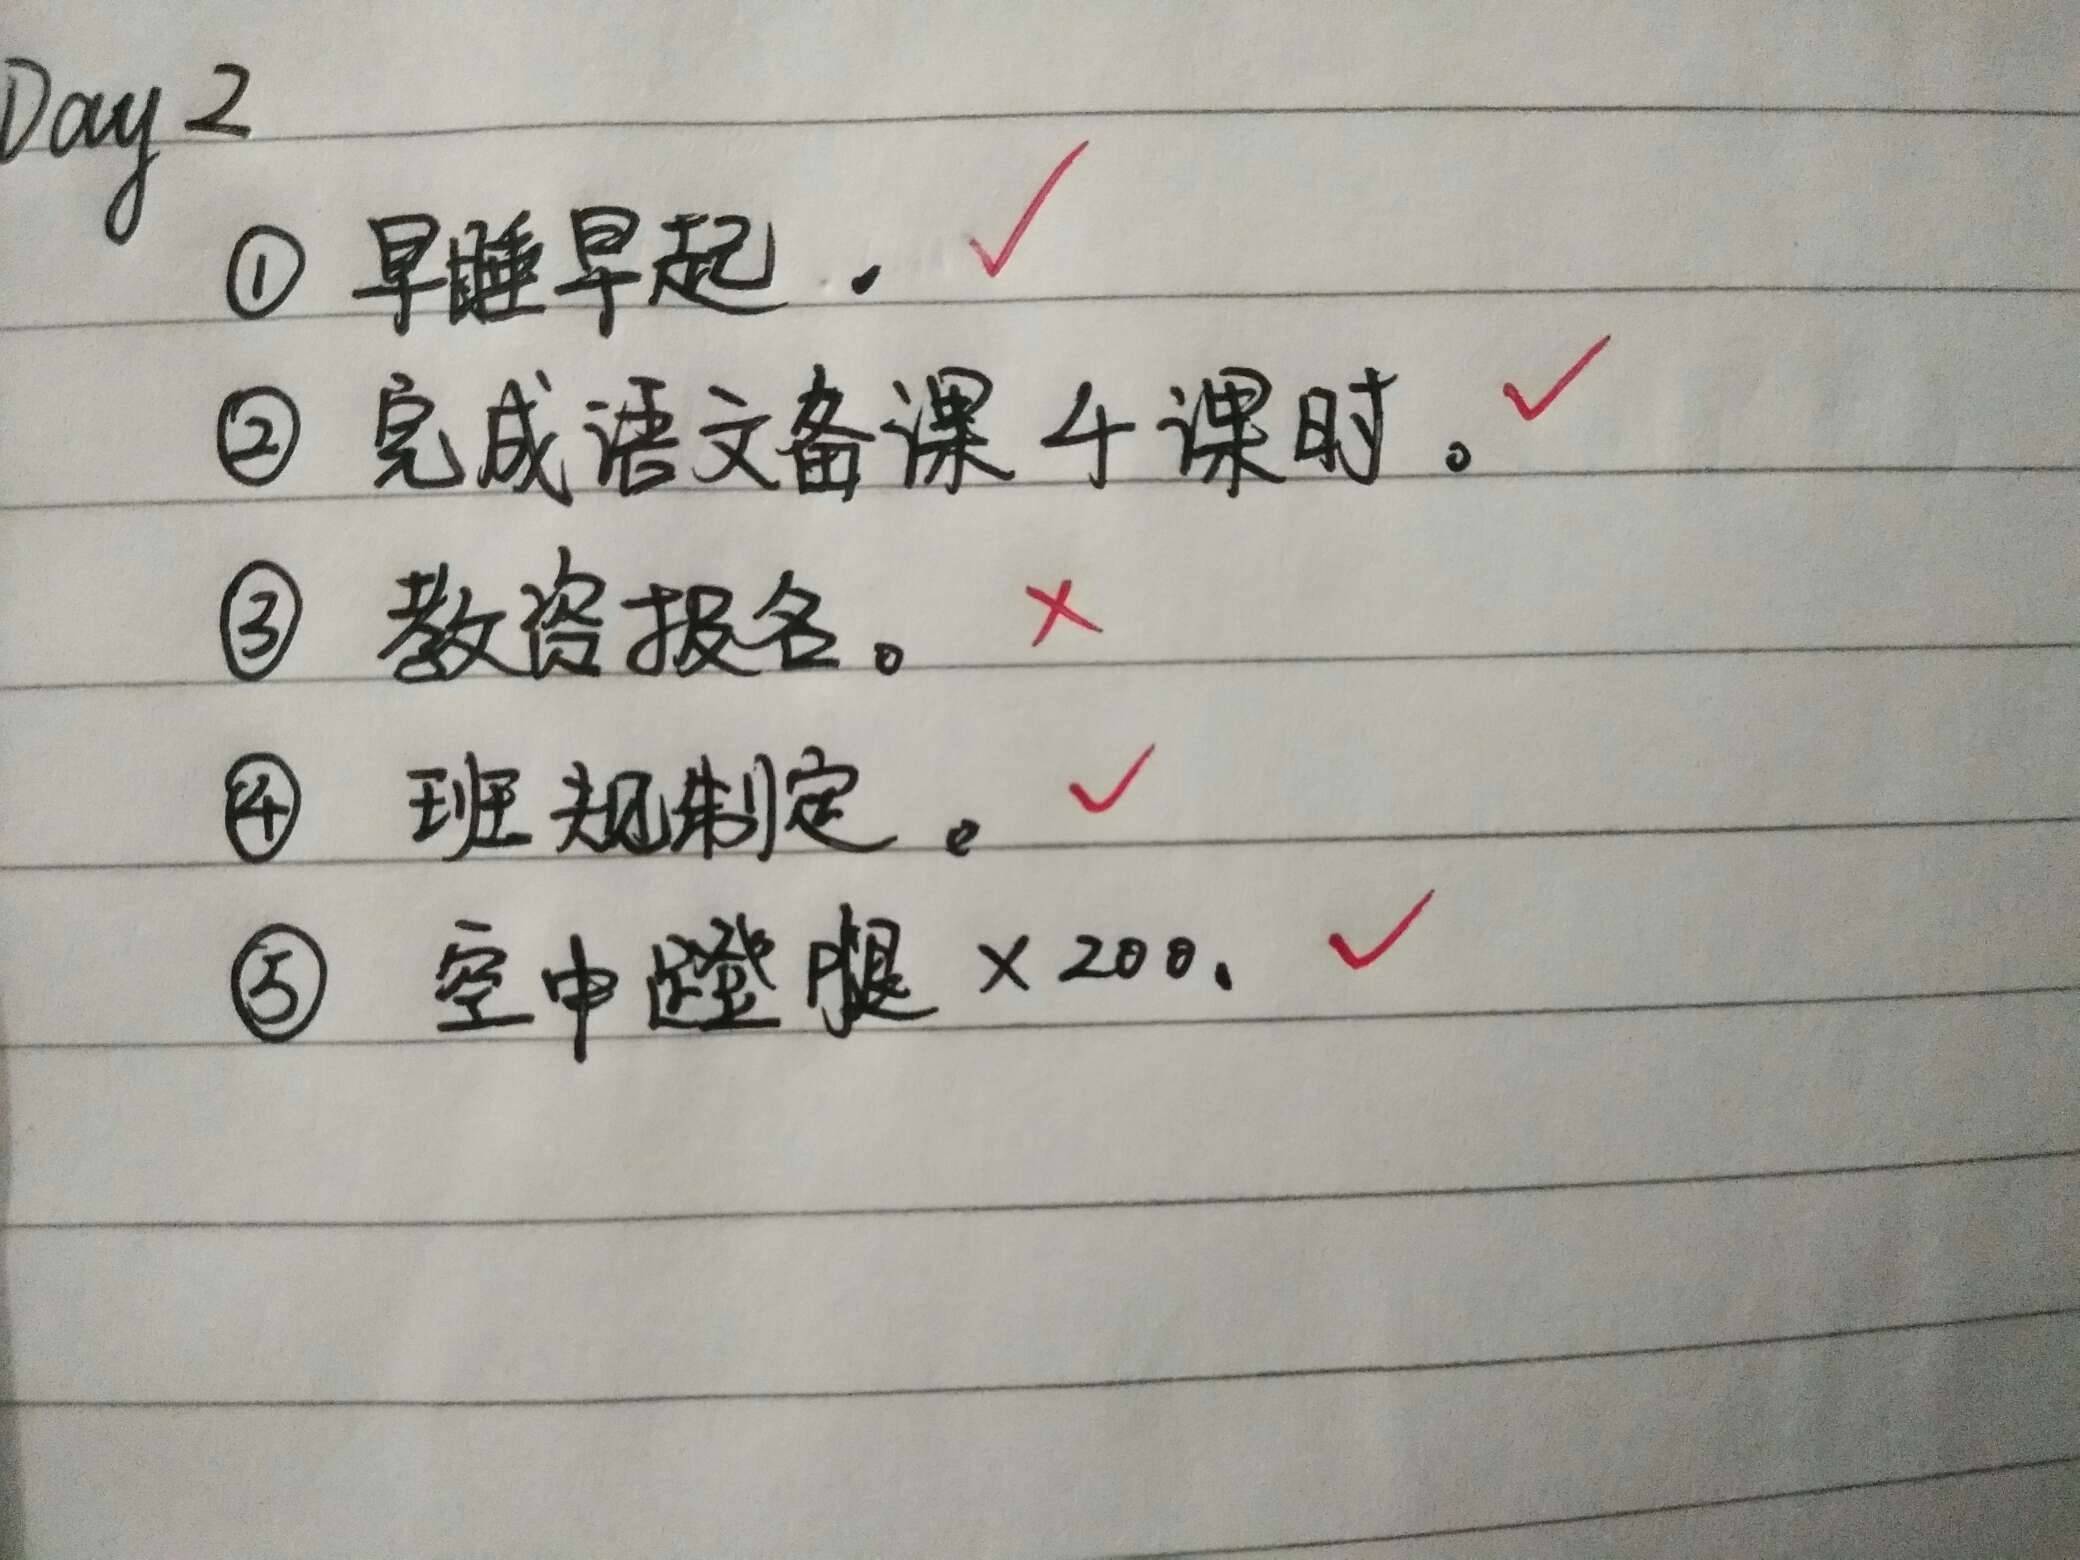 Day 2
① 早睡早起. ✓
② 完成语文备课4课时。✓
③ 教资报名。×
④ 班规制定。✓
⑤ 空中蹬腿×200. ✓